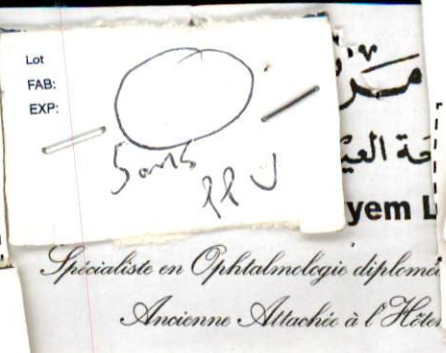 Lot
FAB:
EXP:
Sans
PPV
حة العي
yem L
Spécialiste en Ophtalmologie diplomée
Ancienne Attachée à l'Hôte